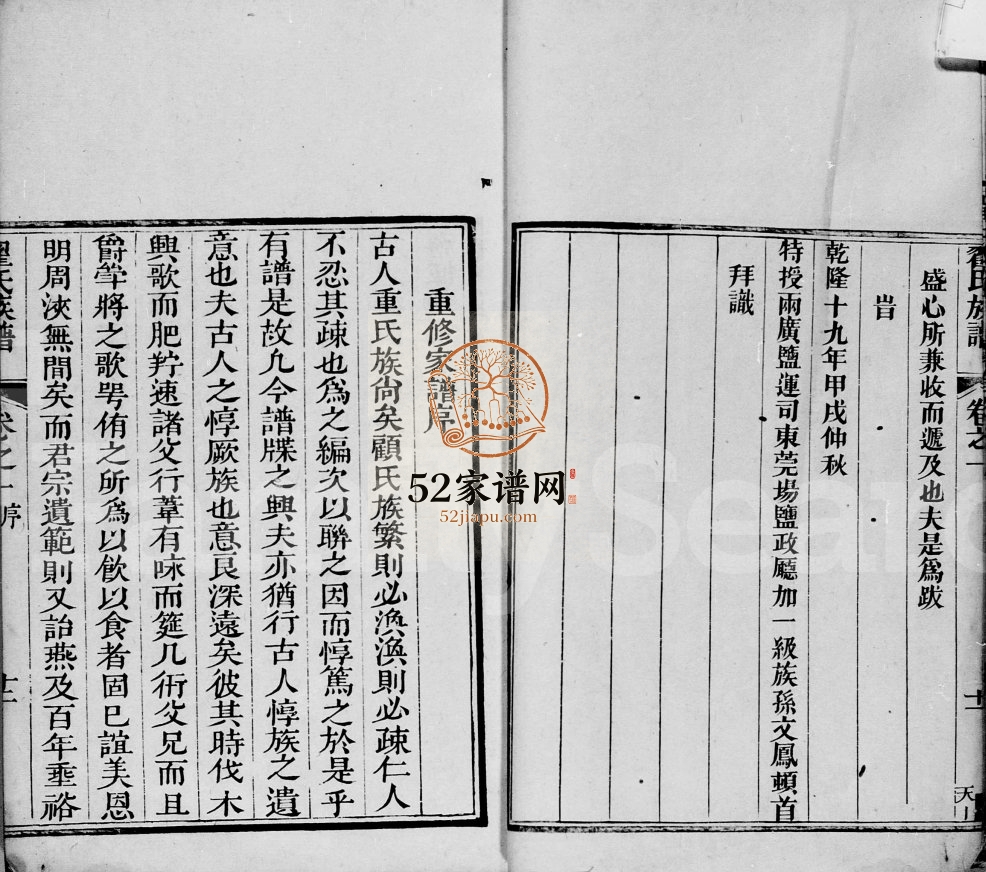 翟氏族譜 卷之一 十一
盛心所兼收而遞及也夫是爲跋
旹
乾隆十九年甲戌仲秋
特授兩廣鹽運司東莞場鹽政廳加一級族孫文鳳頓首
拜識
重修家譜序
古人重氏族尙矣顧氏族繁則必渙渙則必疎仁人
不忍其疎也爲之編次以聯之因而惇篤之於是乎
有譜是故凢今譜牒之興夫亦猶行古人惇族之遺
意也夫古人之惇厥族也意良深遠矣彼其時伐木
興歌而肥羜速諸父行葦有咏而筵几衎父兄而且
爵斝將之歌咢侑之所爲以飮以食者固已誼美恩
明周浹無間矣而君宗遺範則又詒燕及百年垂裕
翟氏族譜 卷之一 序 十二
52家谱网
52jiapu.com